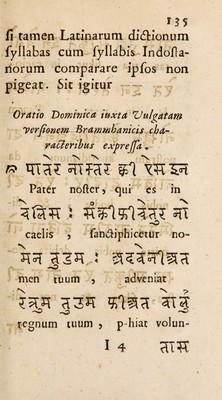 135
ſi tamen Latinarum dictionum
ſyllabas cum ſyllabis Indoſta-
norum comparare ipſos non
pigeat. Sit igitur
Oratio Dominica iuxta Vulgatam
verſionem Brammhanicis cha-
racteribus expreſſa.
पातेर नोस्तेर क्वी ऐस इन
Pater noſter, qui es in
चेलिस : संक्तीफीचेतुर नो
caelis : ſanctiphicetur no-
मेन तुउम : अदवेनीअत
men tuum , adveniat
तुउम फीअत
regnum tuum , p-hiat volun-
I 4 तास